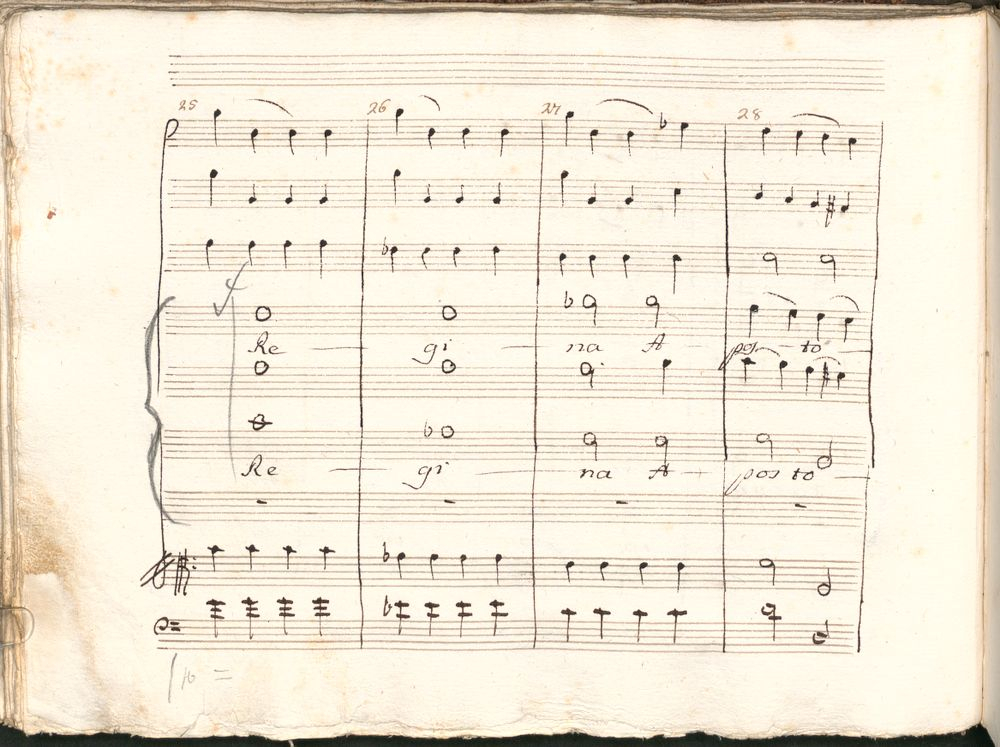 25 26 27 28
Re — gi — na A — pos — to
Re — gi — na A — pos to